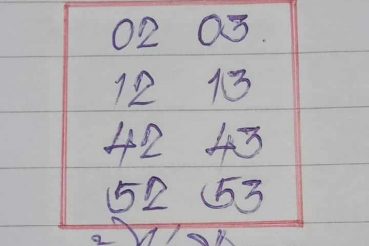 02 03
12 13
42 43
52 53